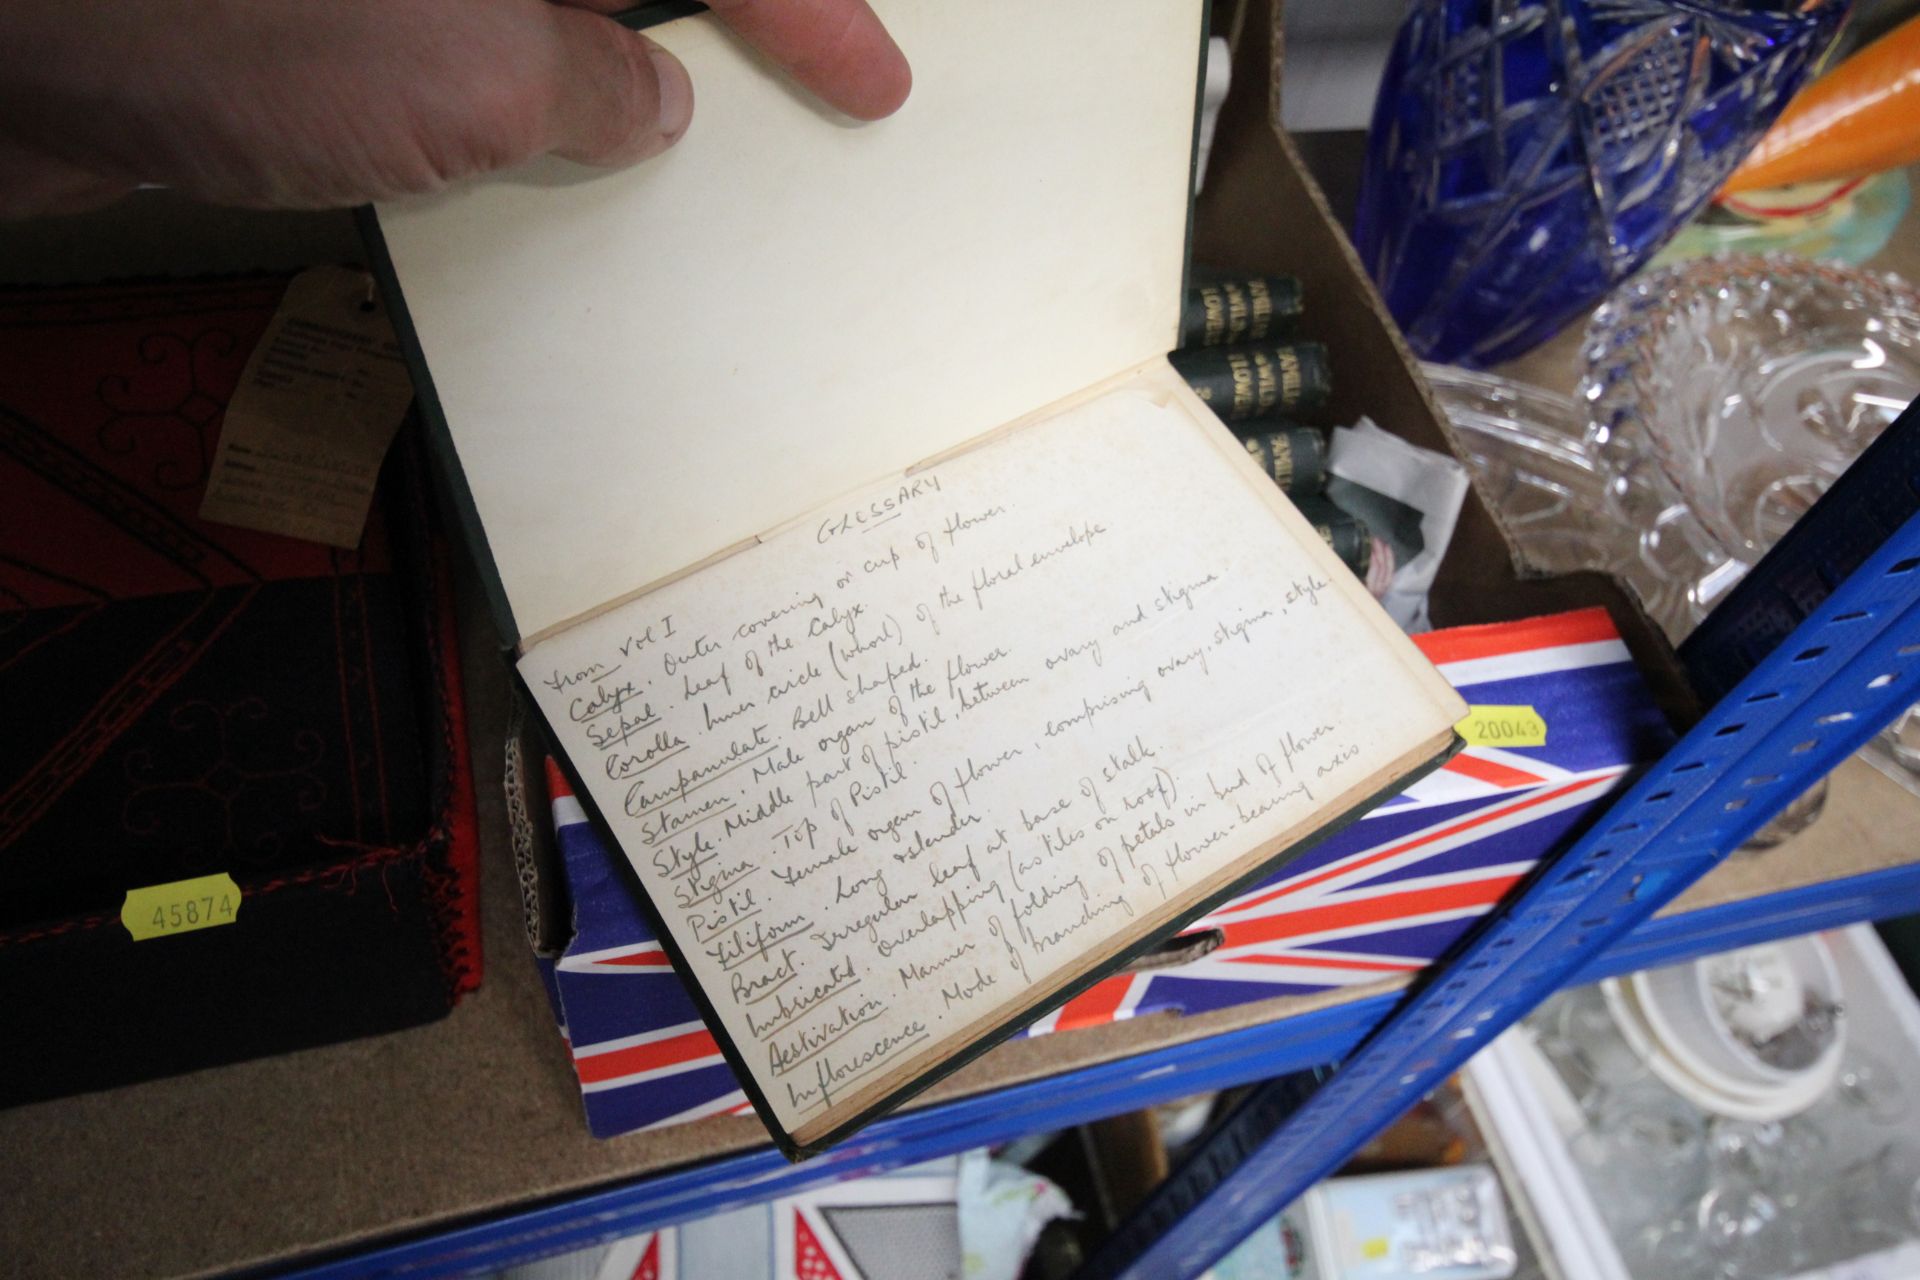 GLOSSARY
From Vol I
Calyx. Outer covering or cup of flower.
Sepal. Leaf of the Calyx.
Corolla. Inner circle (whorl) of the floral envelope
Campanulate. Bell shaped.
Stamen. Male organ of the flower.
Style. Middle part of pistil, between ovary and stigma.
Stigma. Top of Pistil.
Pistil. Female organ of flower, comprising ovary, stigma, style.
Filiform. Long & slender.
Bract. Irregular leaf at base of stalk.
Imbricated. Overlapping (as tiles on roof).
Aestivation. Manner of folding of petals in bud of flower
Inflorescence. Mode of branching of flower-bearing axis.
FAMILIAR WILD FLOWERS
FAMILIAR WILD FLOWERS
45874
20043